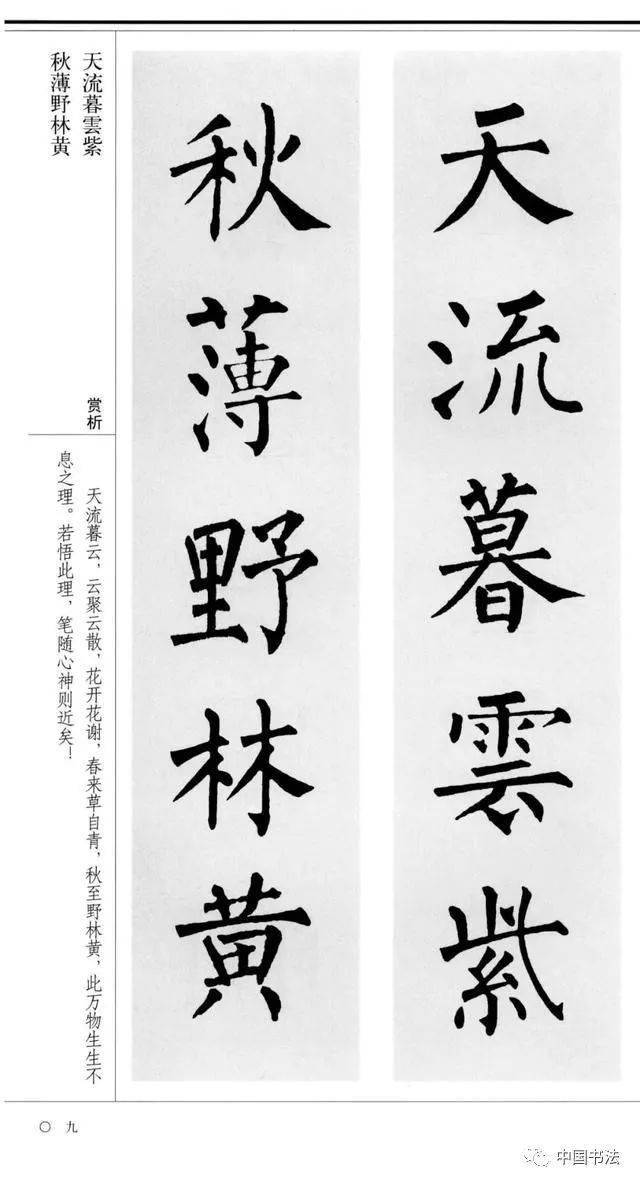 天流暮雲紫
秋薄野林黄
天流暮雲紫
秋薄野林黄
赏析
天流暮云，云聚云散，花开花谢，春来草自青，秋至野林黄，此万物生生不
息之理。若悟此理，笔随心神则近矣！
〇九
中国书法